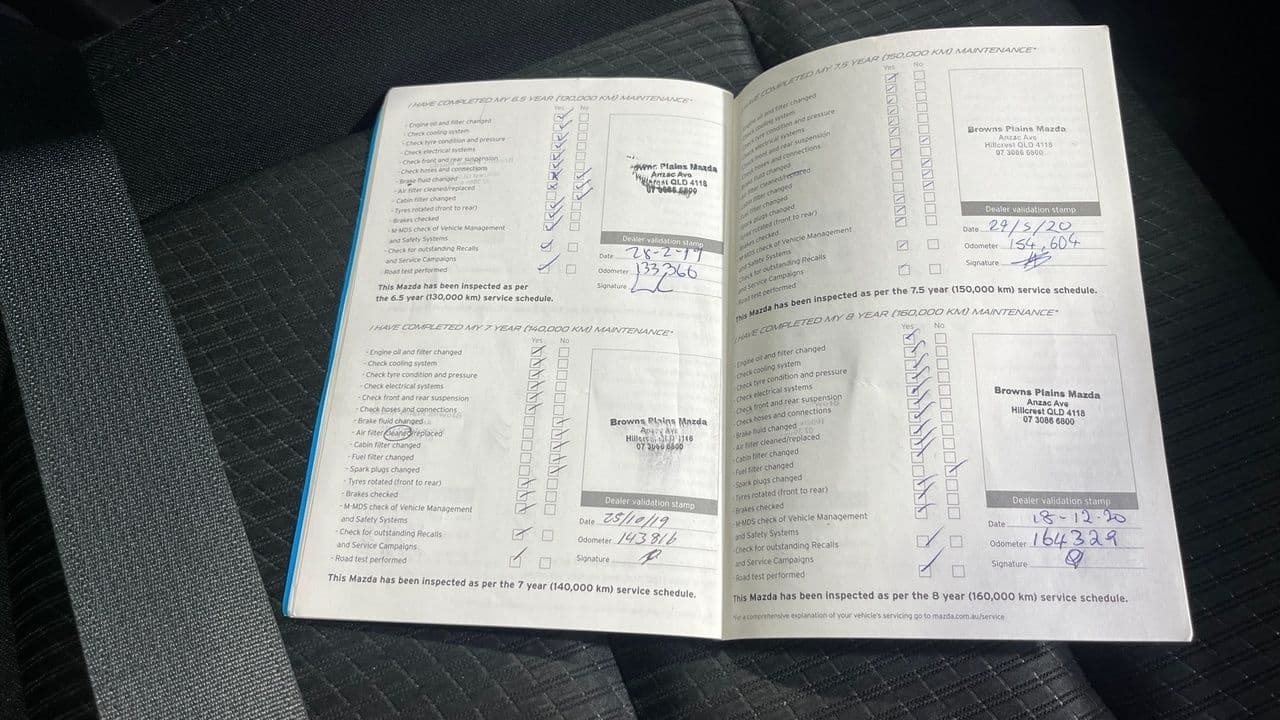 I HAVE COMPLETED MY 6.5 YEAR (130,000 KM) MAINTENANCE*
Yes No
- Engine oil and filter changed
- Check cooling system
- Check tyre condition and pressure
- Check electrical systems
- Check front and rear suspension
- Check hoses and connections
- Brake fluid changed
- Air filter cleaned/replaced
- Cabin filter changed
- Tyres rotated (front to rear)
- Brakes checked
- M-MDS check of Vehicle Management
and Safety Systems
- Check for outstanding Recalls
and Service Campaigns
- Road test performed
Plains Mazda
Anzac Ave
Hillcrest QLD 4118
07 3086 6800
Dealer validation stamp
Date 28-2-19
Odometer 133,366
Signature
This Mazda has been inspected as per
the 6.5 year (130,000 km) service schedule.
I HAVE COMPLETED MY 7 YEAR (140,000 KM) MAINTENANCE*
Yes No
- Engine oil and filter changed
- Check cooling system
- Check tyre condition and pressure
- Check electrical systems
- Check front and rear suspension
- Check hoses and connections
- Brake fluid changed
- Air filter cleaned/replaced
- Cabin filter changed
- Fuel filter changed
- Spark plugs changed
- Tyres rotated (front to rear)
- Brakes checked
- M-MDS check of Vehicle Management
and Safety Systems
- Check for outstanding Recalls
and Service Campaigns
- Road test performed
Browns Plains Mazda
Anzac Ave
Hillcrest QLD 4118
07 3086 6800
Dealer validation stamp
Date 25/10/19
Odometer 143816
Signature
This Mazda has been inspected as per the 7 year (140,000 km) service schedule.
I HAVE COMPLETED MY 7.5 YEAR (150,000 KM) MAINTENANCE*
Yes No
- Engine oil and filter changed
- Check cooling system
- Check tyre condition and pressure
- Check electrical systems
- Check front and rear suspension
- Check hoses and connections
- Brake fluid changed
- Air filter cleaned/replaced
- Cabin filter changed
- Fuel filter changed
- Spark plugs changed
- Tyres rotated (front to rear)
- Brakes checked
- M-MDS check of Vehicle Management
and Safety Systems
- Check for outstanding Recalls
and Service Campaigns
- Road test performed
Browns Plains Mazda
Anzac Ave
Hillcrest QLD 4118
07 3086 6800
Dealer validation stamp
Date 29/5/20
Odometer 154,604
Signature
This Mazda has been inspected as per the 7.5 year (150,000 km) service schedule.
I HAVE COMPLETED MY 8 YEAR (160,000 KM) MAINTENANCE*
Yes No
- Engine oil and filter changed
- Check cooling system
- Check tyre condition and pressure
- Check electrical systems
- Check front and rear suspension
- Check hoses and connections
- Brake fluid changed
- Air filter cleaned/replaced
- Cabin filter changed
- Fuel filter changed
- Spark plugs changed
- Tyres rotated (front to rear)
- Brakes checked
- M-MDS check of Vehicle Management
and Safety Systems
- Check for outstanding Recalls
and Service Campaigns
- Road test performed
Browns Plains Mazda
Anzac Ave
Hillcrest QLD 4118
07 3086 6800
Dealer validation stamp
Date 18-12-20
Odometer 164329
Signature
This Mazda has been inspected as per the 8 year (160,000 km) service schedule.
*For a comprehensive explanation of your vehicle's servicing go to mazda.com.au/service